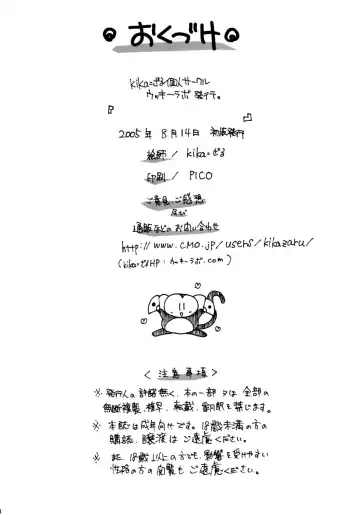 おくづけ
kika=ざる個人サークル
ウッキーラボ発行。
『
2005年 8月14日 初版発行
絵師 / kika=ざる
印刷 / PICO
ご意見、ご感想
及び
通販などのお問い合わせ
http://www.cmo.jp/users/kikazaru/
(kika=ざるHP:ウッキーラボ.com)
〈 注意事項 〉
※ 発行人の許諾無く、本の一部又は全部の
無断複製、複写、転載、翻訳を禁じます。
※ 本誌は成年向けです。18歳未満の方の
購読、譲渡はご遠慮ください。
※ 又、18歳以上の方でも影響を受けやすい
性格の方の閲覧もご遠慮ください。